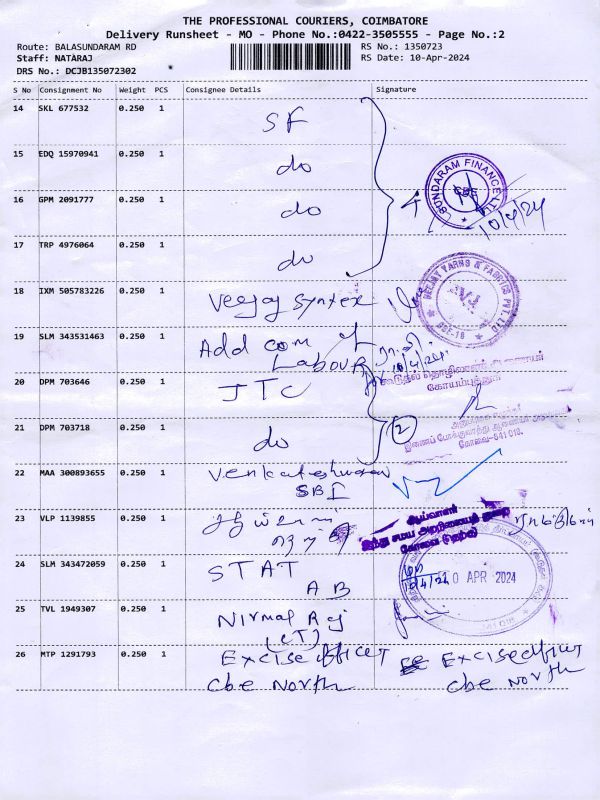 THE PROFESSIONAL COURIERS, COIMBATORE
Delivery Runsheet - MO - Phone No.:0422-3505555 - Page No.:2
Route: BALASUNDARAM RD RS No.: 1350723
Staff: NATARAJ RS Date: 10-Apr-2024
DRS No.: DCJB135072302 *
S No Consignment No Weight PCS Consignee Details Signature
14 SKL 677532 0.250 1 SF
15 EDQ 15970941 0.250 1 do
SUNDARAM FINANCE LTD
CBE
16 GPM 2091777 0.250 1 do 4
10/4/24
17 TRP 4976064 0.250 1 do
18 IXM 505783226 0.250 1 Veejay Syntex
VEEJAY YARNS & FABRICS PVT. LTD
VJ
CBE-18
19 SLM 343531463 0.250 1 Add Com of
Labour
10/4/24
கூடுதல் தொழிலாளர் ஆணையர்
கோயம்புத்தூர்
20 DPM 703646 0.250 1 JTC
21 DPM 703718 0.250 1 do 2
இணைப் போக்குவரத்து ஆணையர்
கோவை-641 018.
22 MAA 300893655 0.250 1 Venkateshwaran
SBI
23 VLP 1139855 0.250 1
ஆய்வாளர்
இந்து சமய அறநிலையத் துறை
கோவை
24 SLM 343472059 0.250 1 STAT
A B
10/4/24
10 APR 2024
25 TVL 1949307 0.250 1 Nirmal Raj
(CT)
26 MTP 1291793 0.250 1 Excise officer Excise officer
Cbe North Cbe North